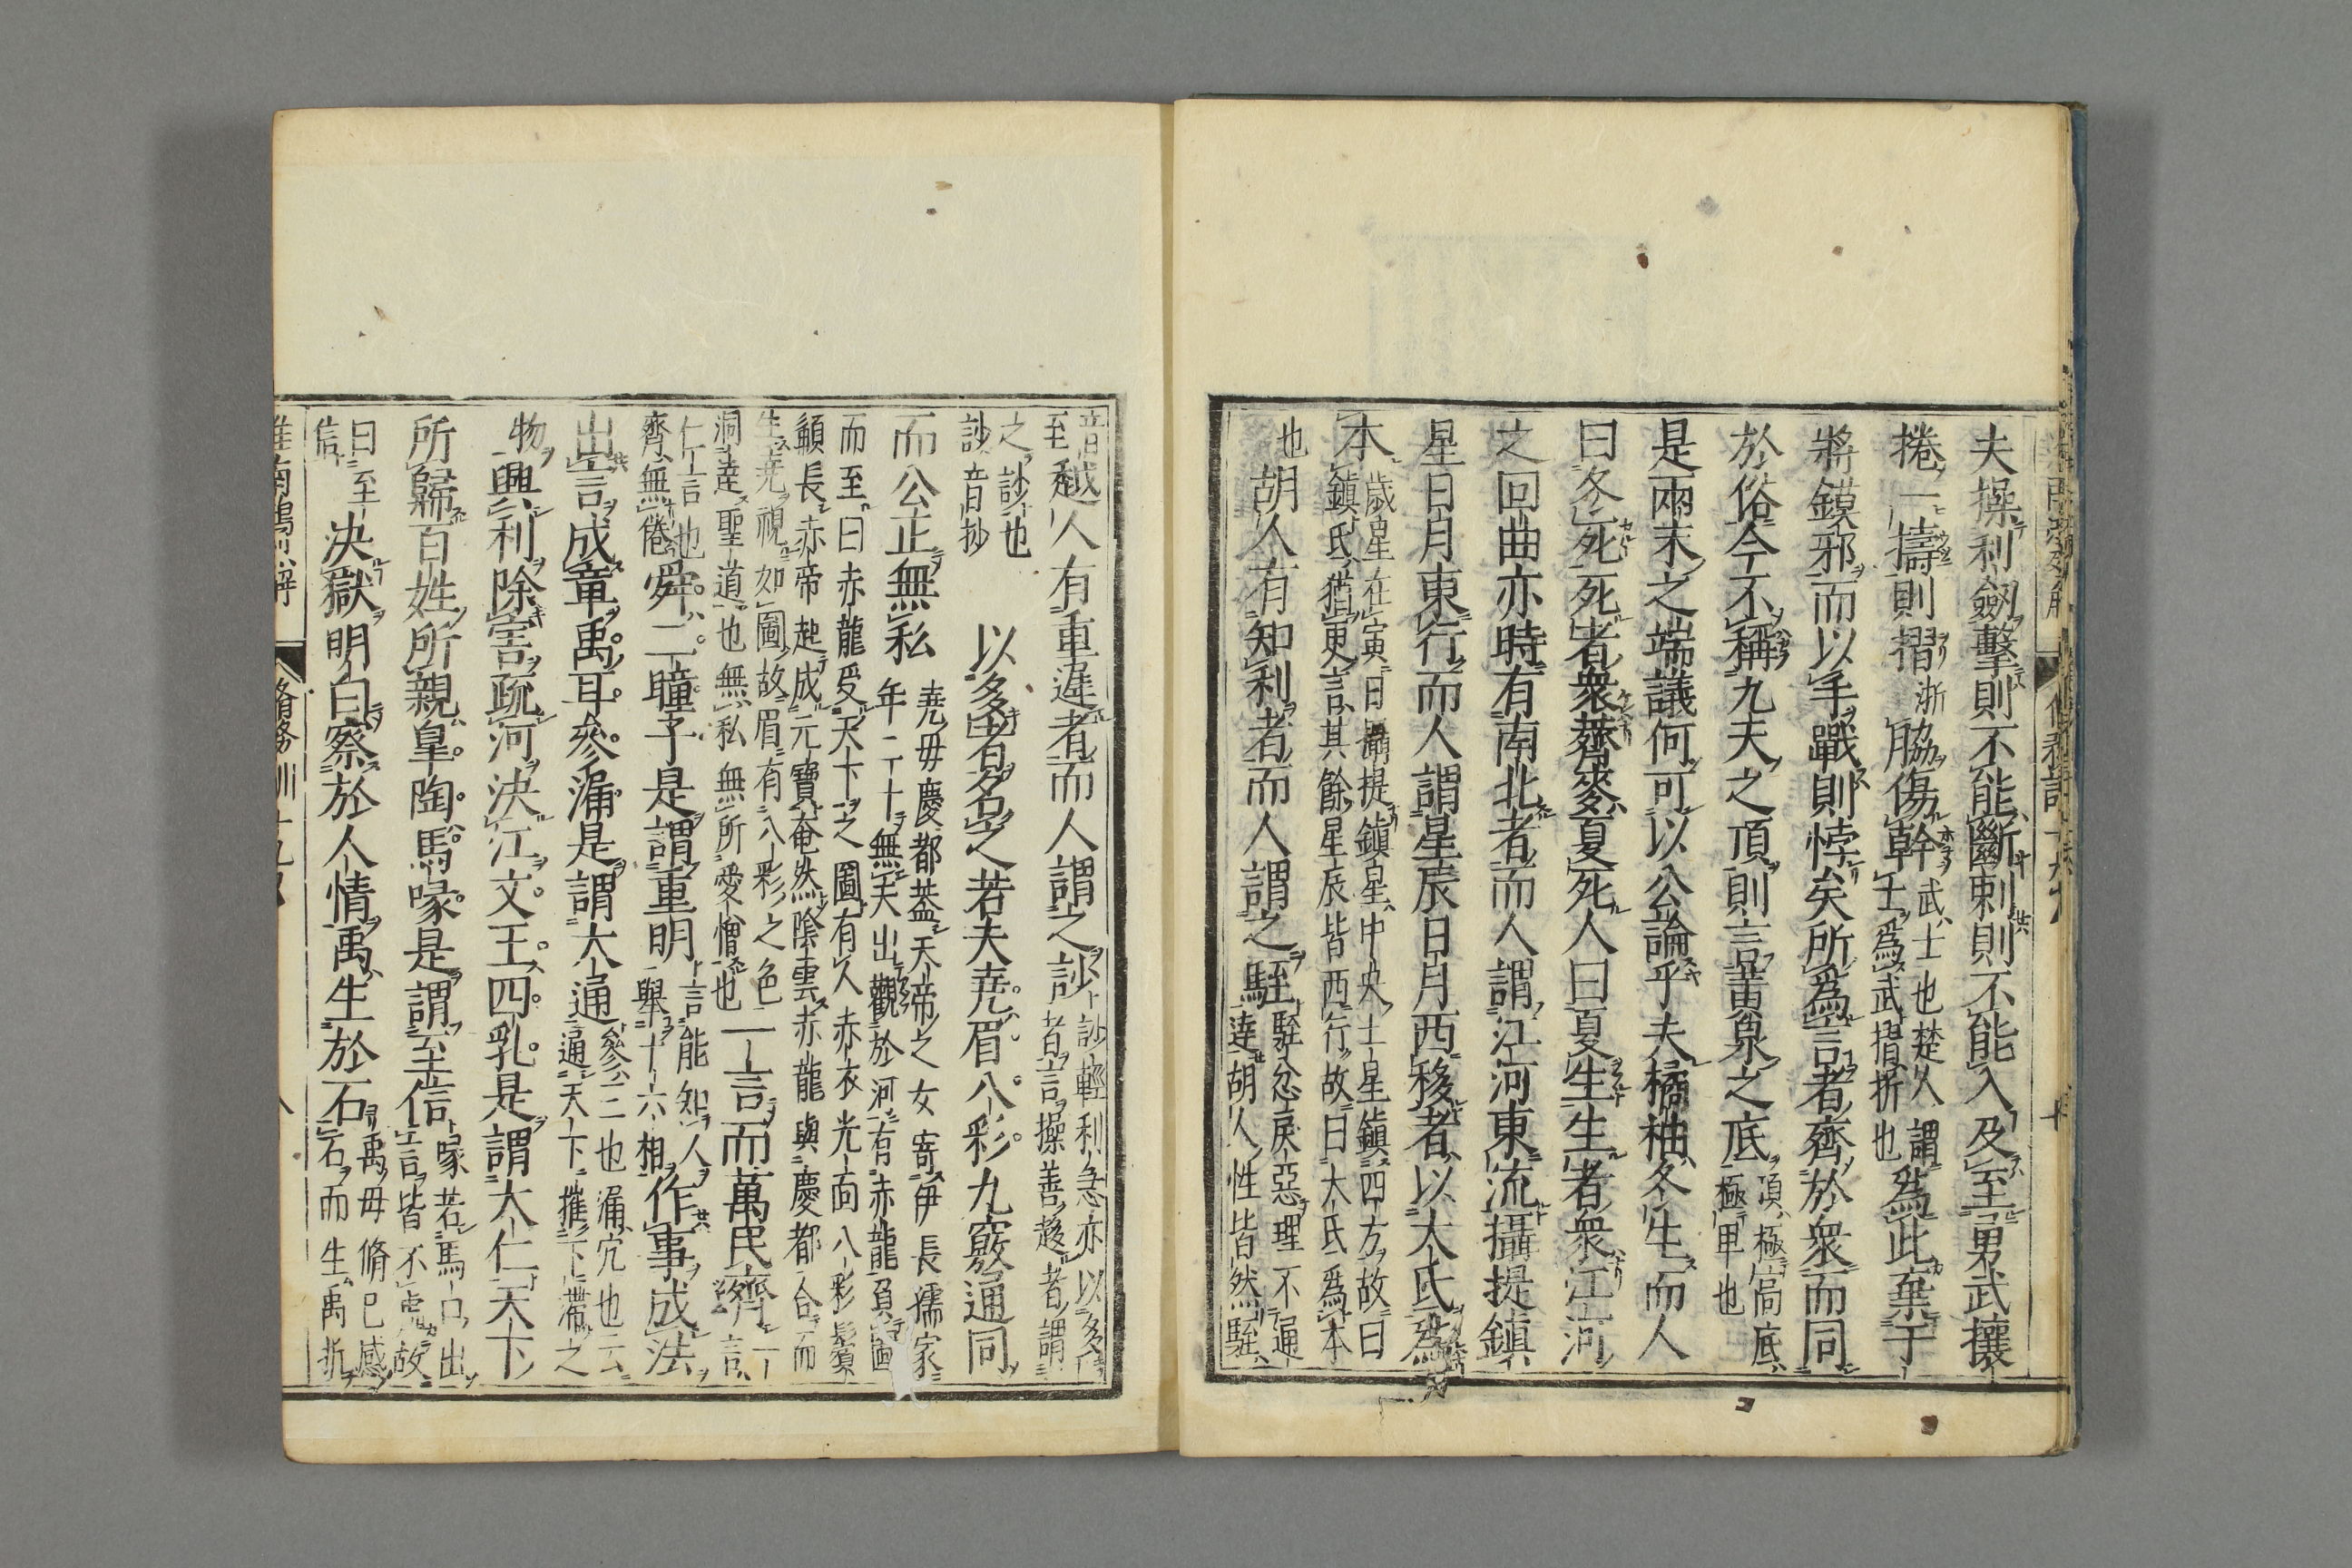 夫操利劔擊則不能斷刺則不能入及至勇武攘
捲一擣則摺浙脇傷幹武士也楚人謂士爲武摺折也爲此棄于
將鏌邪而以手戰則悖矣所爲言者齊於衆而同
於俗今不稱九天之頂則言黃泉之底頂極高底極甲也
是兩末之端議何可以公論乎夫橘柚冬生而人
曰冬死死者衆薺麥夏死人曰夏生生者衆江河
之回曲亦時有南北者而人謂江河東流攝提鎮
星日月東行而人謂星辰日月西移者以大氐爲
本歲星在寅曰攝提鎮星中央土星鎮四方故曰鎮氐猶更言其餘星辰皆西行故曰大氐爲本
也胡人有知利者而人謂之駤駤忿戾惡理不通達胡人性皆然駤
音至越人有重遲者而人謂之訬訬輕利急亦以多者言操善趍者謂
之訬也訬音抄以多者名之若夫堯眉八彩九竅通同
而公正無私堯母慶都葢天帝之女寄伊長孺家年二十無夫出觀於河有赤龍負圖
而至曰赤龍受天下之圖有人赤衣光面八彩鬢鬚長赤帝起成元寶奄然陰雲赤龍與慶都合而
生堯視如圖故眉有八彩之色洞達聖道也無私無所愛憎也一言而萬民齊一言
仁言也齊無倦舜二瞳子是謂重明言能知人舉十六相作事成法
出言成章禹耳參漏是謂大通參三也漏穴也云通天下摧下滯之
物興利除害疏河決江文王四乳是謂大仁天下
所歸百姓所親皐陶馬喙是謂至信喙若馬口出言皆不虛故
曰至信決獄明白察於人情禹生於石禹母脩巳感石而生禹折
脩務訓